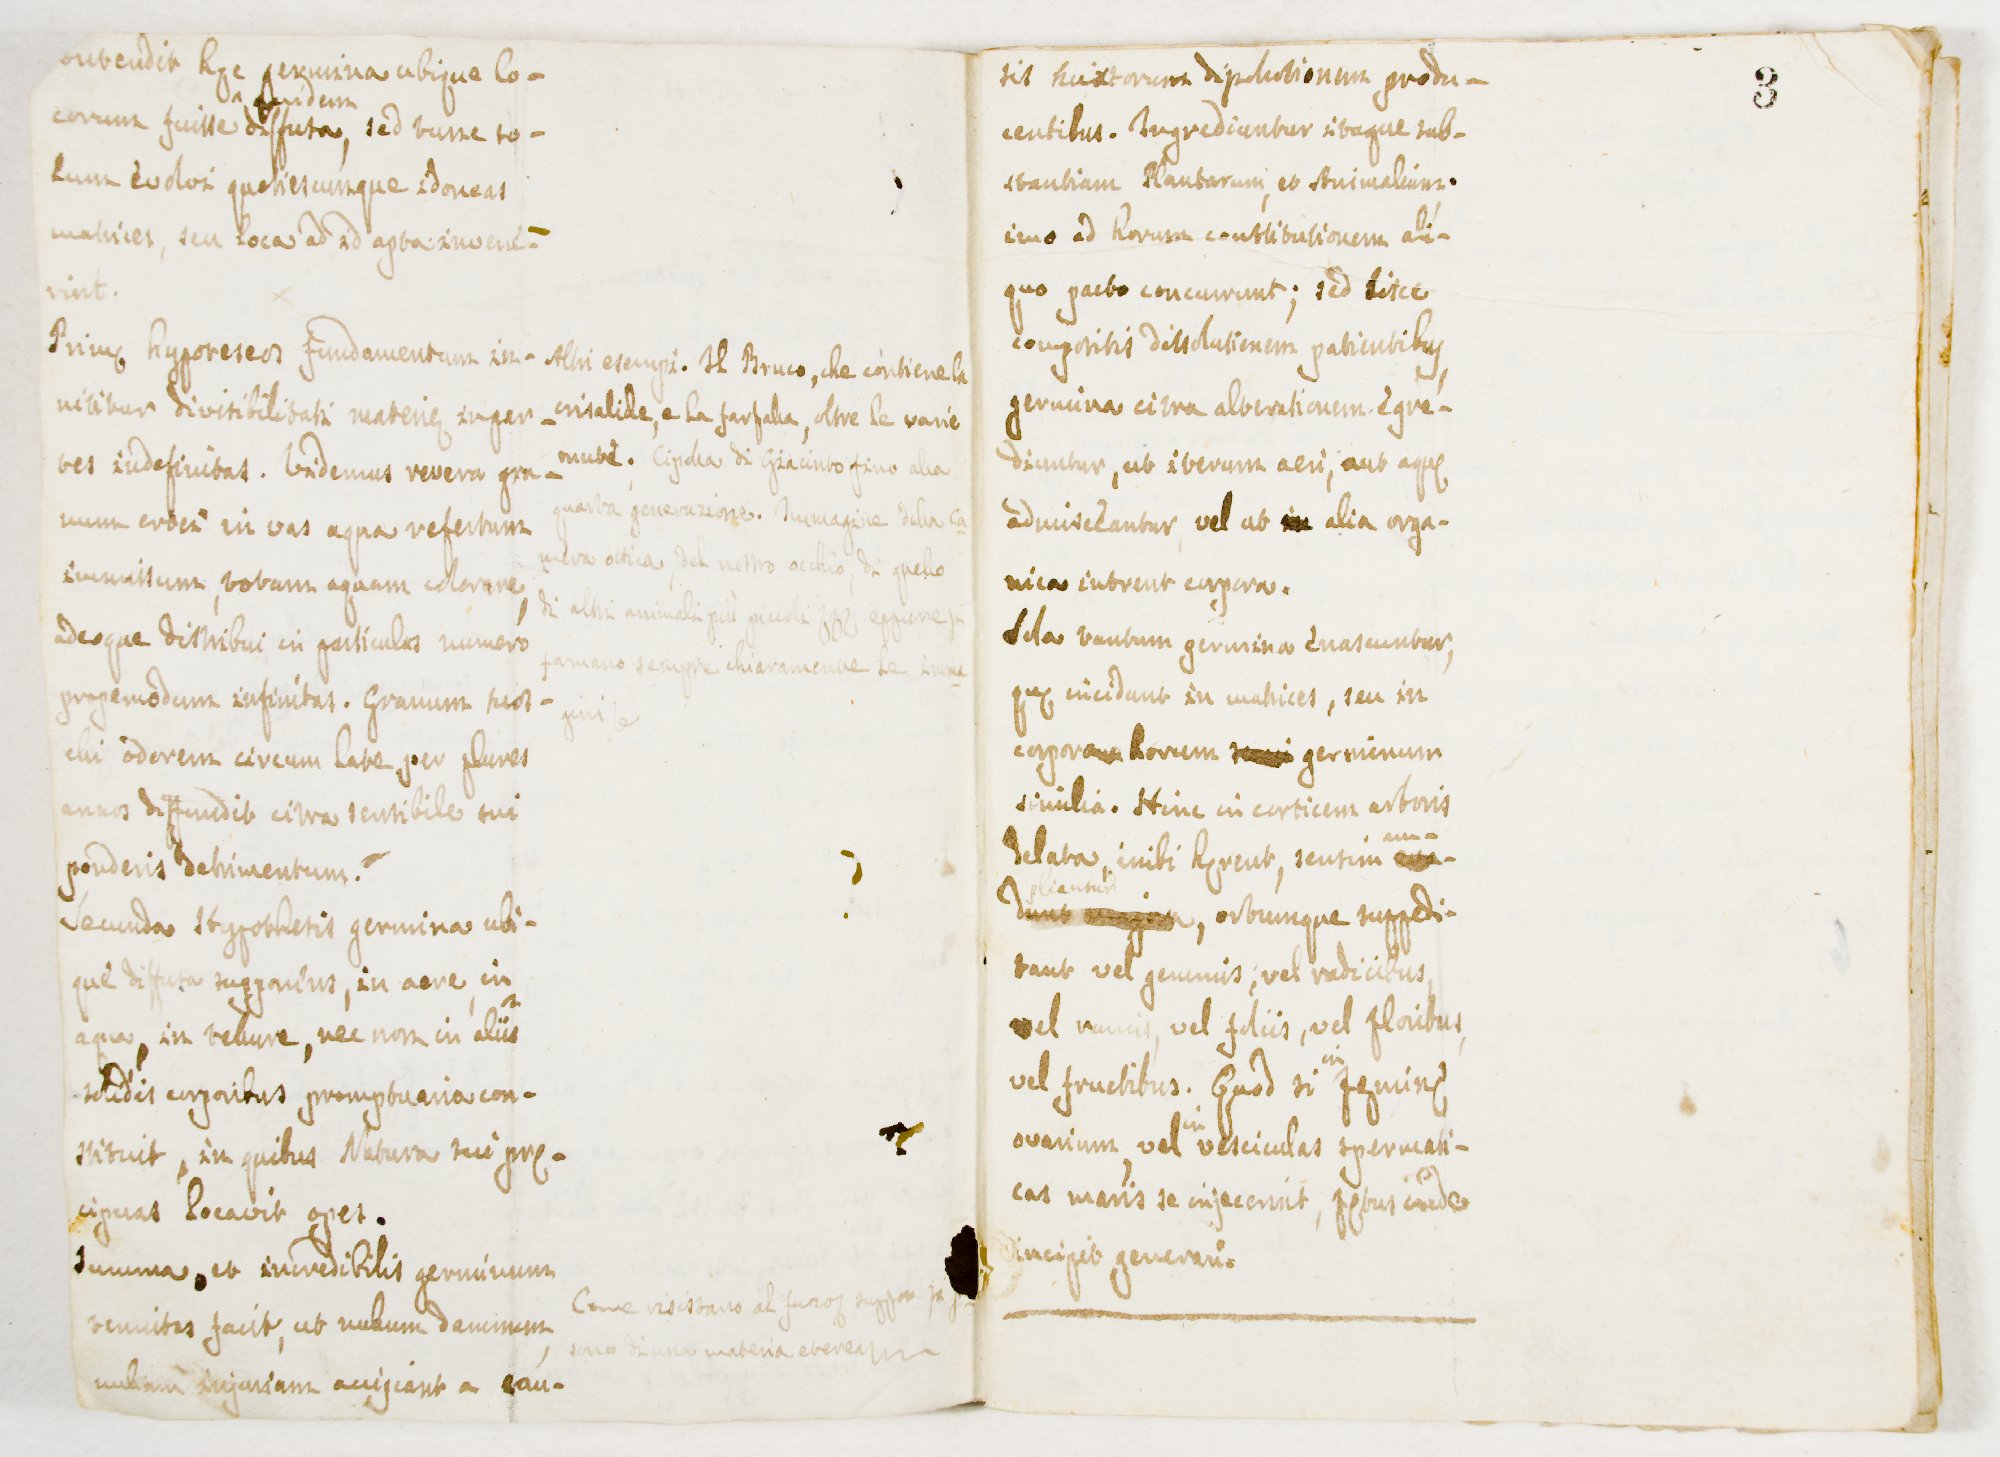 ontendit hęc germina ubique lo-
quidem
corum fuisse diffusa, sed tunc so-
lum evolvi quotiescumque idoneas
matrices, seu loca ad id apta invene-
rint.
Primę hypoteseos fundamentum in-
nititur divisibilitati materię in par-
tes indefinitas. Videmus revera gra-
num croci in vas aqua refertum
immissum, totam aquam colorare,
adeoque distribui in particulas numero
propemodum infinitas. Granum mos-
chi odorem circum late per plures
annos diffundit citra sensibile sui
ponderis detrimentum.
Secunda Hypothesis germina ubi-
que diffusa supponens, in aere, in
aqua, in tellure, nec non in aliis
solidis corporibus promptuaria con-
stituit, in quibus Natura sui prę-
cipuas locavit opes.
Summa, et incredibilis germinum
tenuitas facit, ut nullum damnum,
nullam injuriam accipiant a cau-
Altri esempi. Il Bruco, che contiene la
crisalide, e la farfalla, oltre le varie
mute. Cipolla di Giacinto fino alla
quarta generazione. Immagine della Ca-
mera ottica, del nostro occhio, di quello
di altri animali più piccoli eppure si
formano sempre chiaramente le imma-
gini
Come resistano al fuoco suppon
sono di una materia eterea
3
sis mixtorum dissolutionem produ-
centibus. Ingrediuntur itaque sub-
stantiam Plantarum, et Animalium.
imo ad horum constitutionem ali-
quo pacto concurrunt; sed hisce
compositis dissolutionem patientibus,
germina citra alterationem egre-
diuntur, ut iterum aeri, aut aquę
admisceantur, vel ut in alia orga-
nica intrent corpora.
Sola tantum germina enascuntur,
quę incidunt in matrices, seu in
corpora horum germinum
similia. Hinc in corticem arboris
delata, inibi hęrent, sensim am-
pliantur
, ortumque suppedi-
tant vel gemmis, vel radicibus,
vel ramis, vel foliis, vel floribus,
vel fructibus. Quod si in fęminę
ovarium, vel in vesciculas spermati-
cas maris se injecerint, fętus inde
incipit generari.